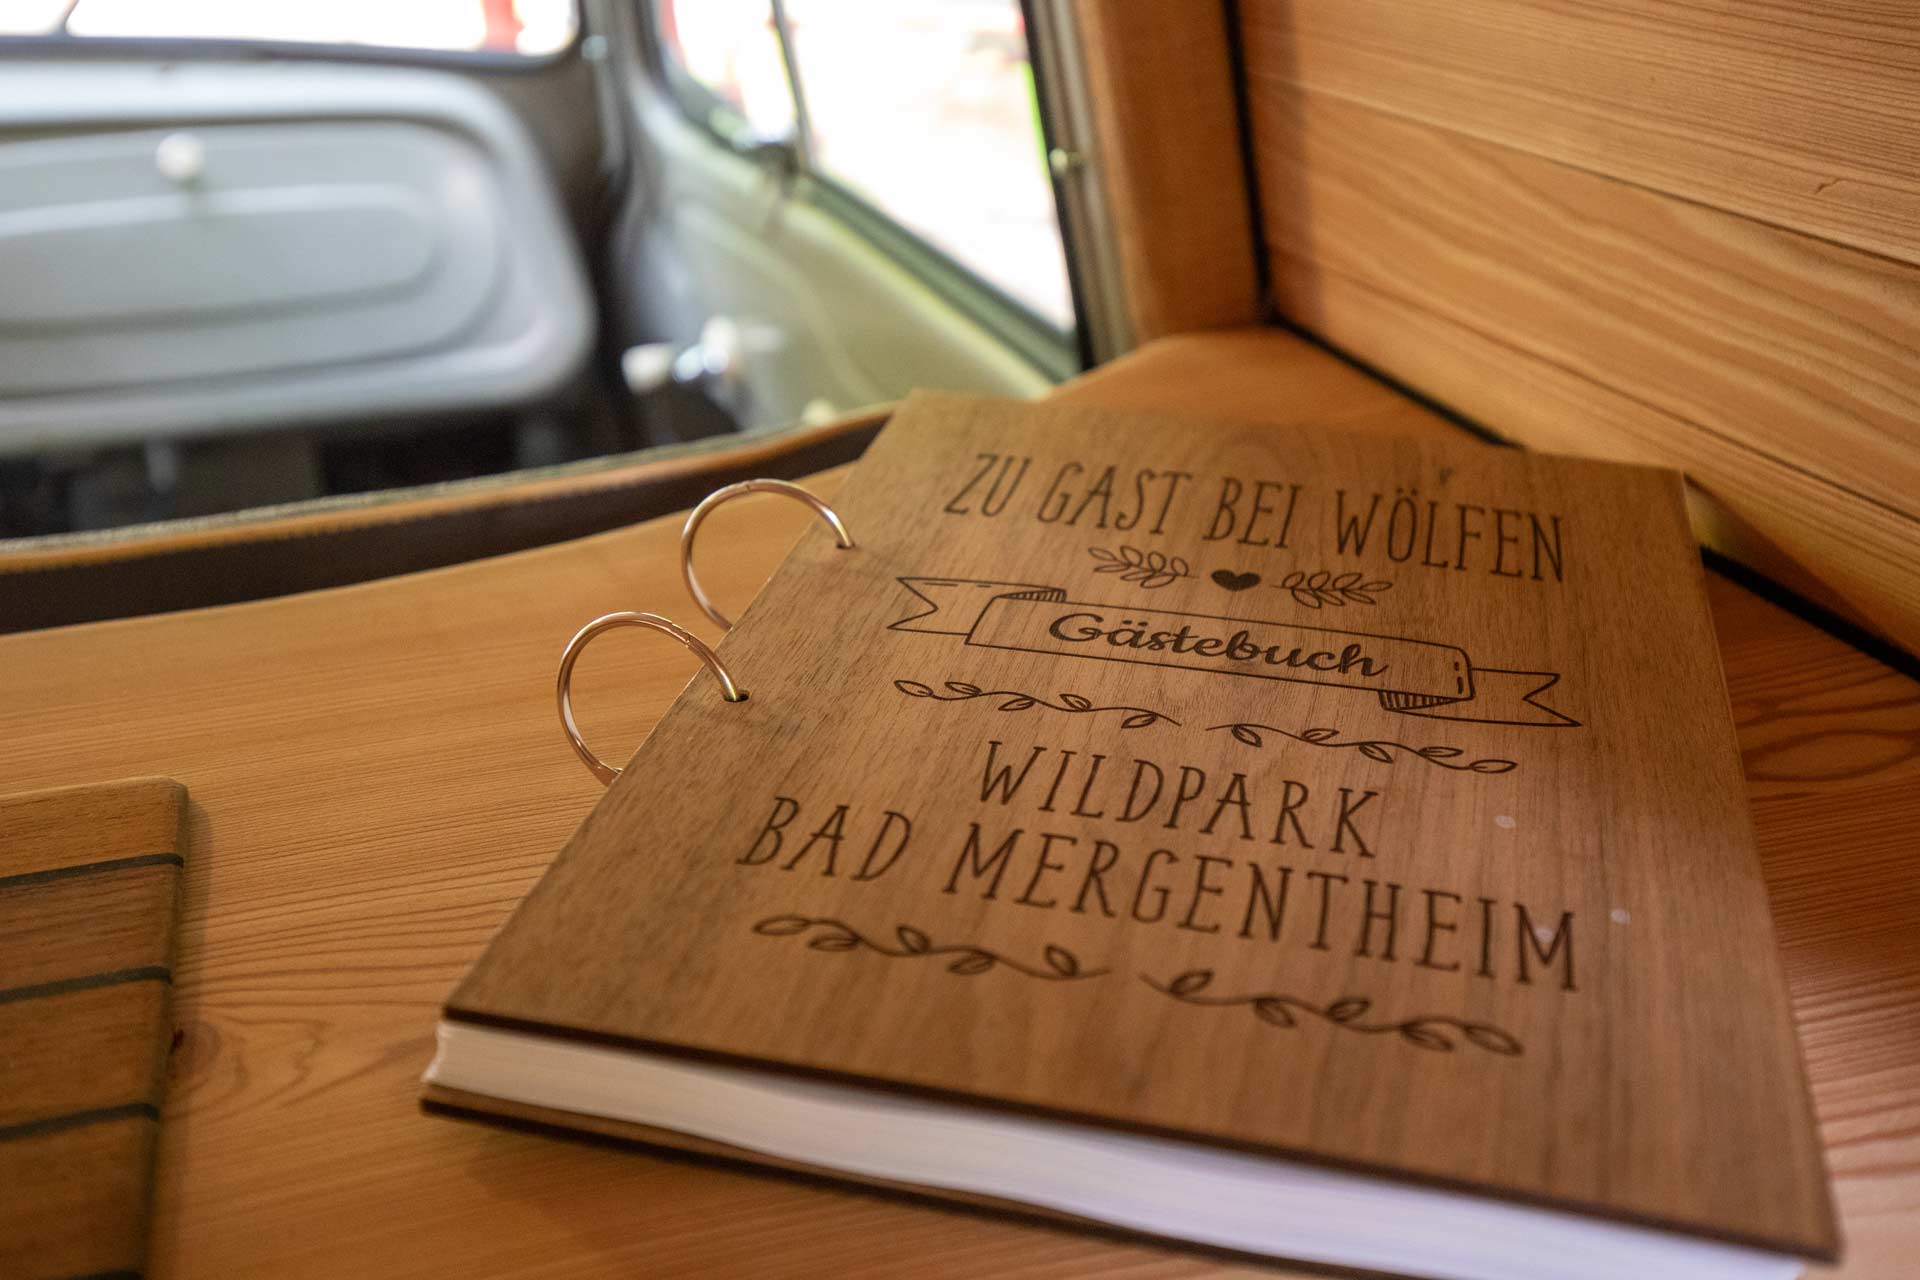 ZU GAST BEI WÖLFEN
Gästebuch
WILDPARK
BAD MERGENTHEIM